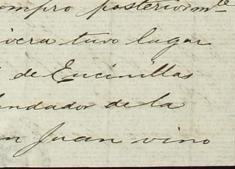 ompro posteriormte
viera tuvo lugar
de Encinillas
endador de la
n Juan vino